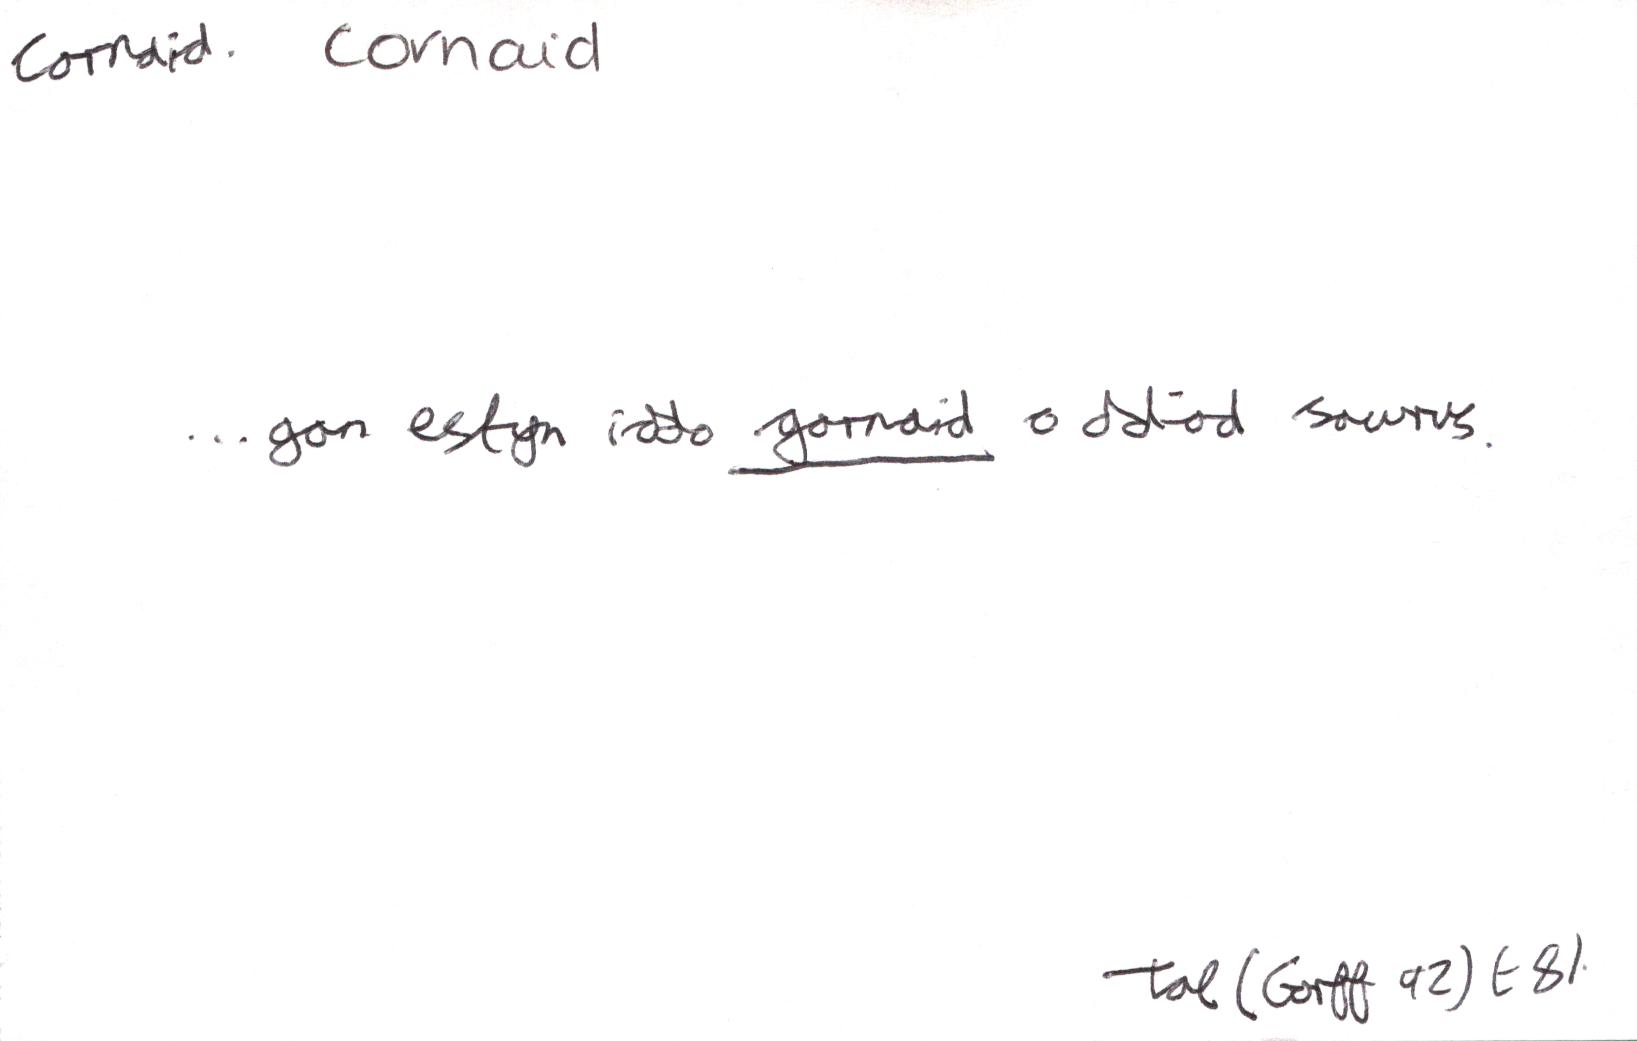 Cornaid. Cornaid
...gan estyn iddo gornaid o ddiod sawrus.
Tal (Gorff 92) t 81.